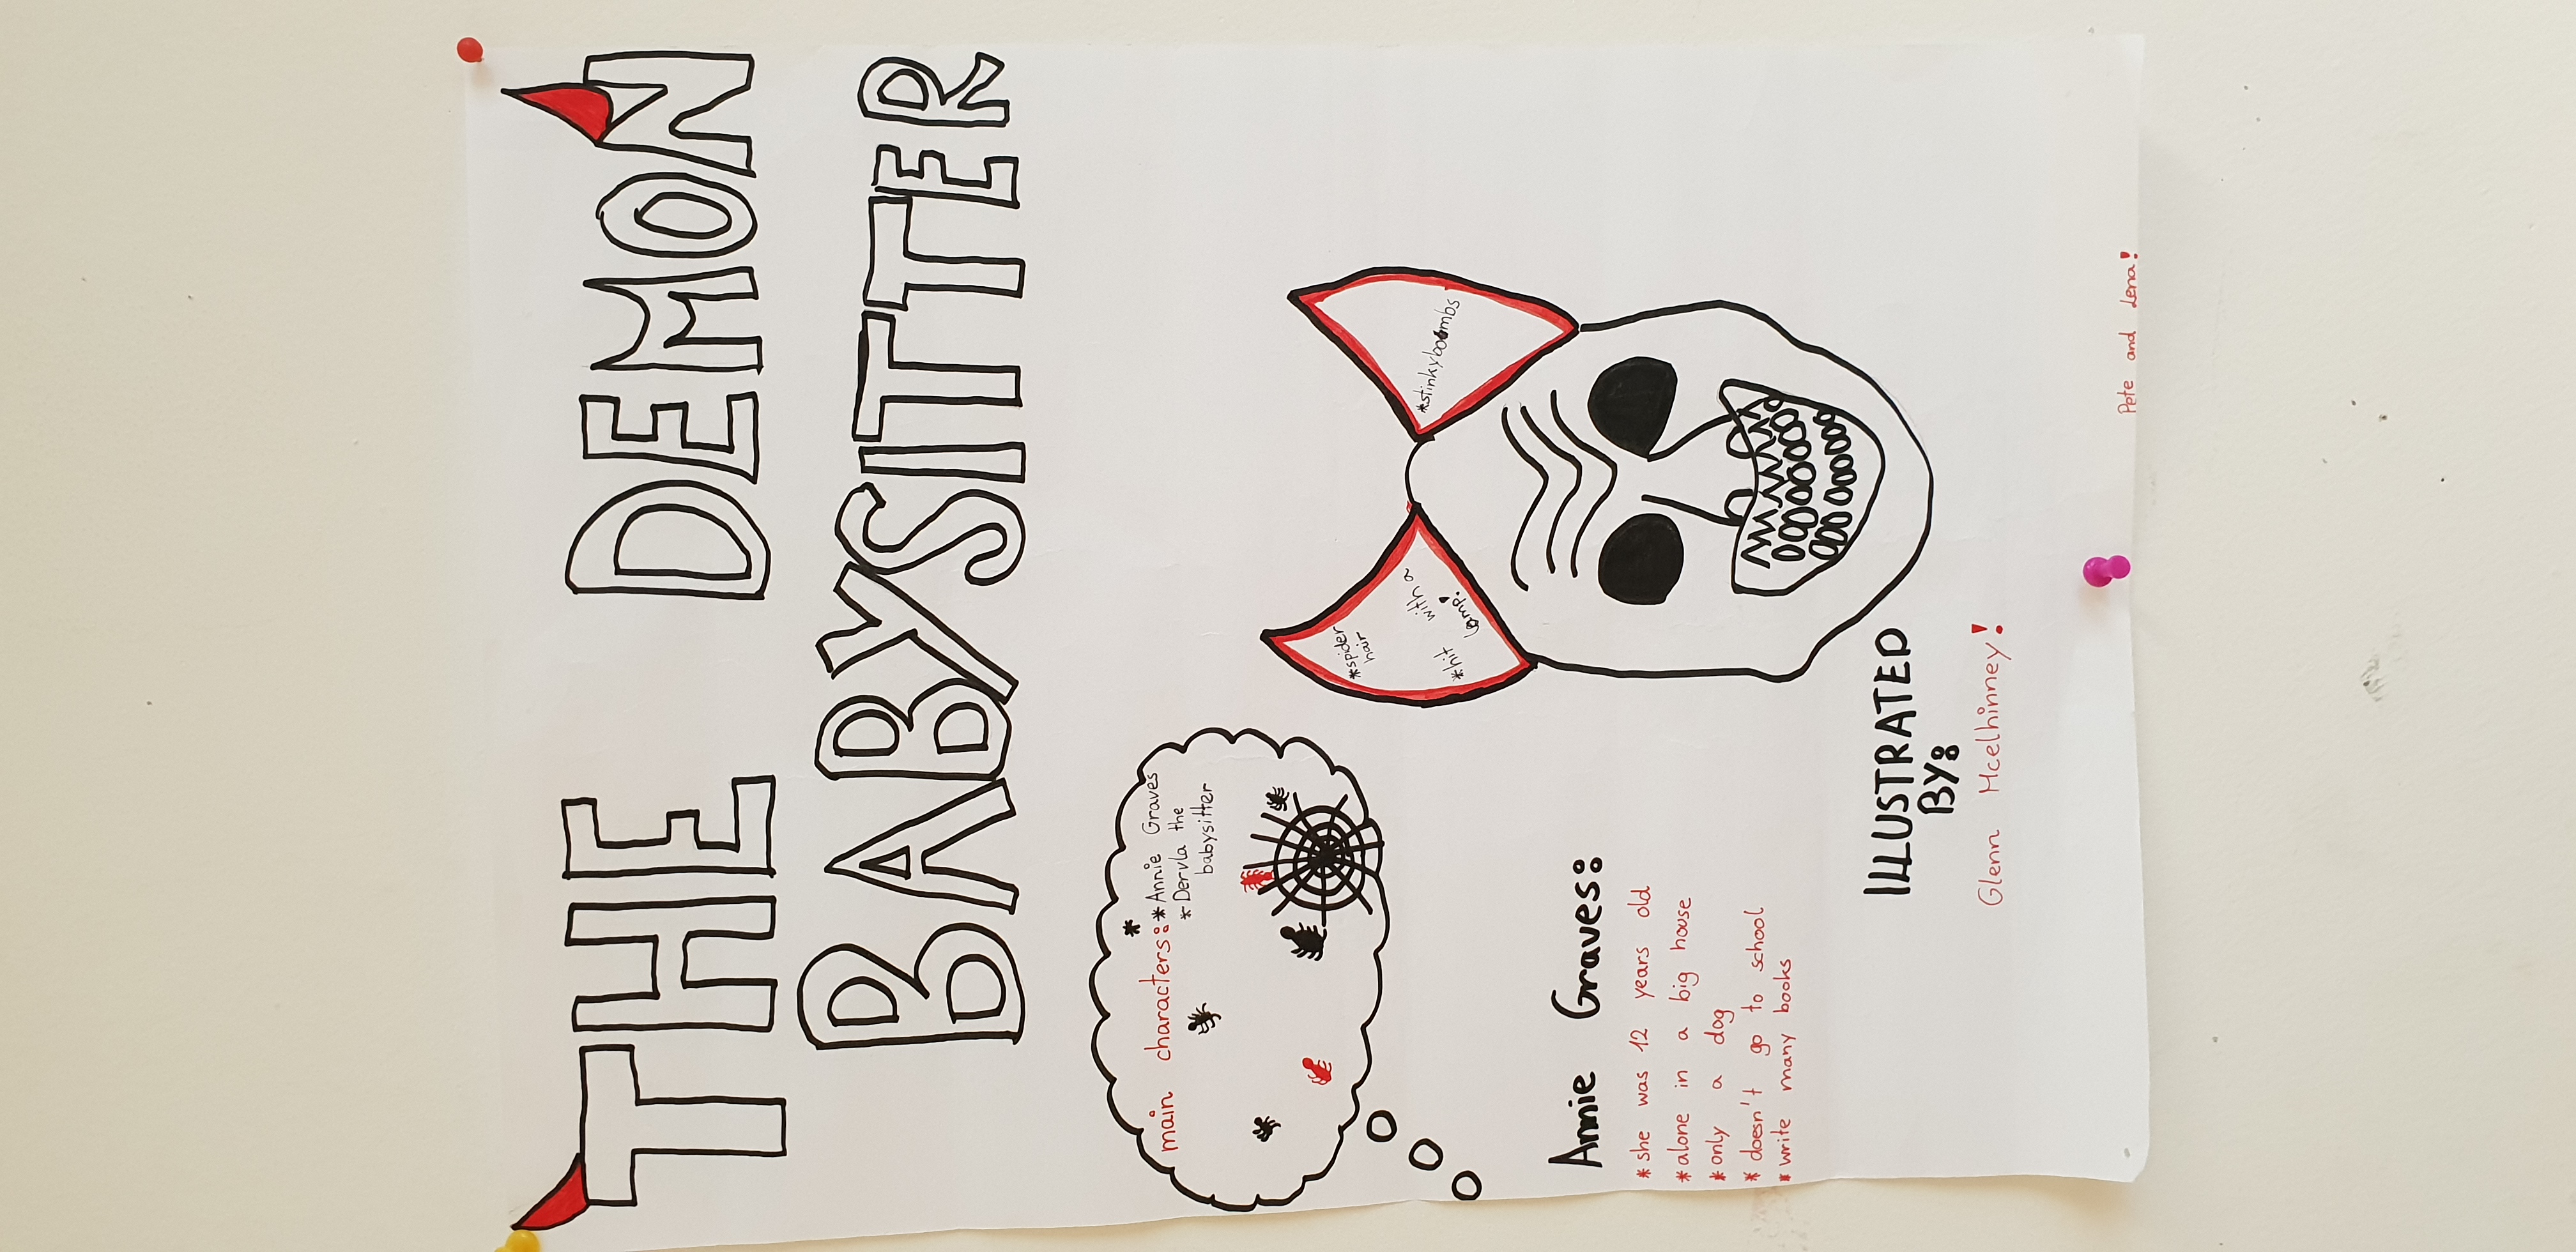 THE DEMON
BABYSITTER
main characters: *Annie Graves
*Dervla the
babysitter
*spider
hair
*hit with a
lamp!
*stinkybombs
Annie Graves:
*she was 12 years old
*alone in a big house
*only a dog
*doesn't go to school
*write many books
ILLUSTRATED
BY:
Glenn Mcelhinney!
Pete and Lena!